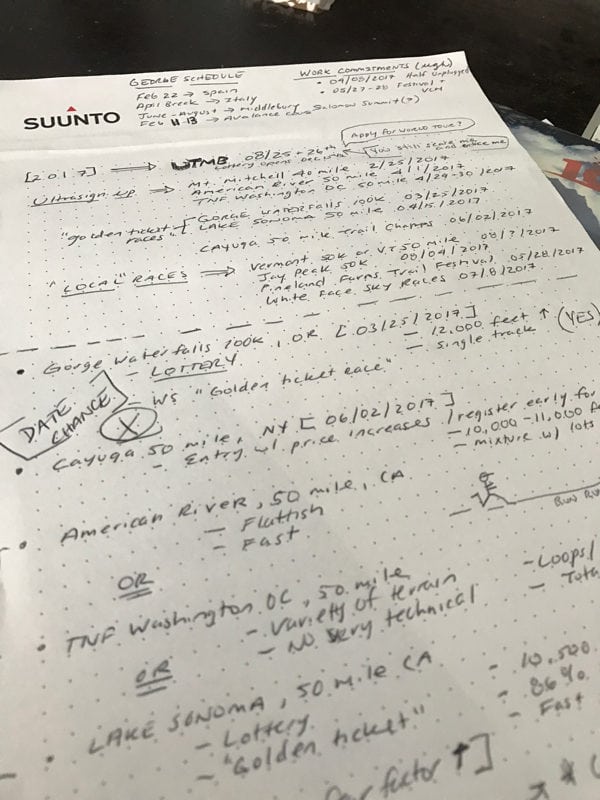 GEORGE SCHEDULE
Feb 22 → Spain
April Break → Italy
June - August → Middlebury
Feb 11-13 → Avalance class
WORK COMMITMENTS (ugh)
• 04/08/2017 Half Unplugged
• 05/27-28 Festival + VCM
Solomon Summit (?)
SUUNTO
[2017] ⟹ UTMB 08/25 + 26th
Lottery opens Dec
Apply for World Tour?
You still scare me
Ultrasign up ⟹ Mt. Mitchell 40 mile 2/25/2017
American River 50 mile 4/1/2017
TNF Washington DC 50 mile 4/29-30/2017
"golden ticket races" { GORGE WATERFALLS 100K 03/25/2017
LAKE SONOMA 50 mile 04/15/2017
CAYUGA 50 mile Trail Champs 06/02/2017
"LOCAL" RACES ⟹ Vermont 50K or VT 50 mile 08/?/2017
Jay Peak 50K 08/04/2017
Pineland Farms Trail Festival 05/28/2017
White Face Sky Races 07/8/2017
• Gorge Waterfalls 100K, OR [03/25/2017]
- LOTTERY
- 12,000 feet ↑
- single track (YES)
- WS "Golden ticket race"
DATE CHANGE
X
• Cayuga 50 mile, NY [06/02/2017]
- Entry w/ price increases / register early for
- 10,000 - 11,000 fe
- mixture w/ lots
• American River, 50 mile, CA
- Flattish
- Fast
RUN RU
OR
• TNF Washington DC, 50 mile
- Variety of terrain
- NO very technical
- Loops/
- Tota
OR
• LAKE SONOMA, 50 mile CA
- Lottery
- "Golden ticket"
- 10,500
- 86%
- Fast
factor ↑]